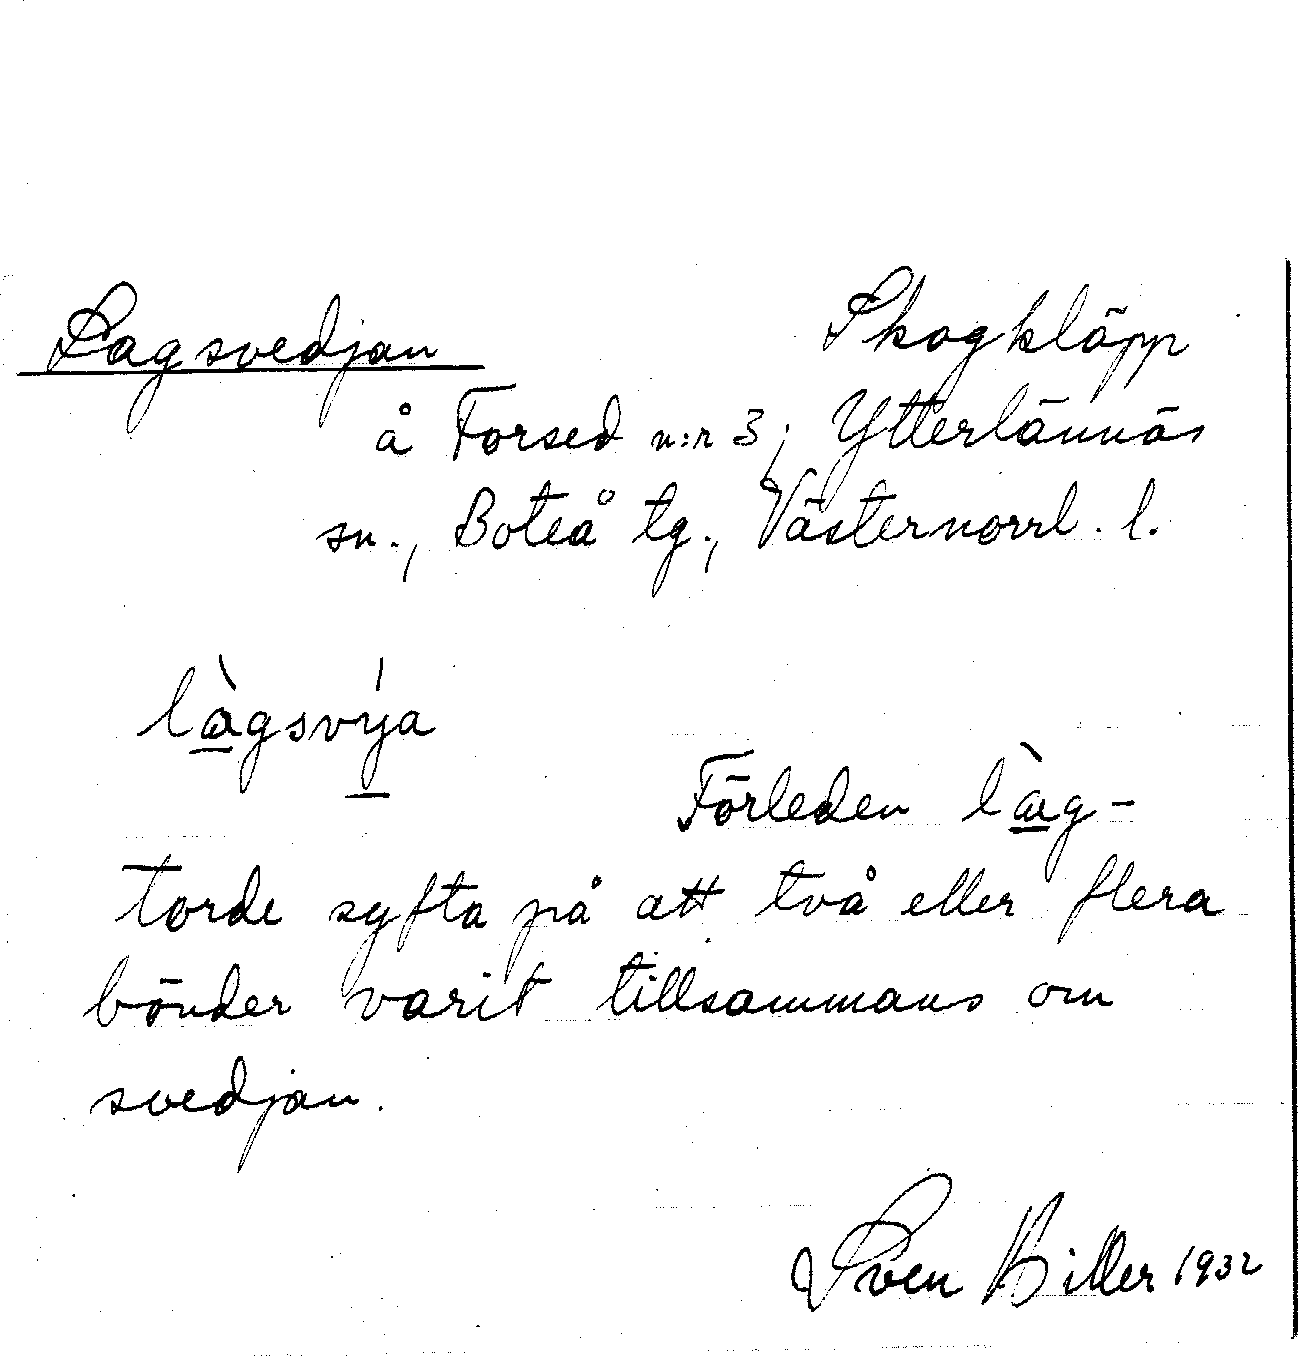 Lagsvedjan Skogkläpp
å Forsed n:r 3, Ytterlännäs
sn., Boteå tg., Västernorrl. l.
là̱gsvý̱a
Förleden là̱g-
torde syfta på att två eller flera
bönder varit tillsammans om
svedjan.
Sven Hiller 1932